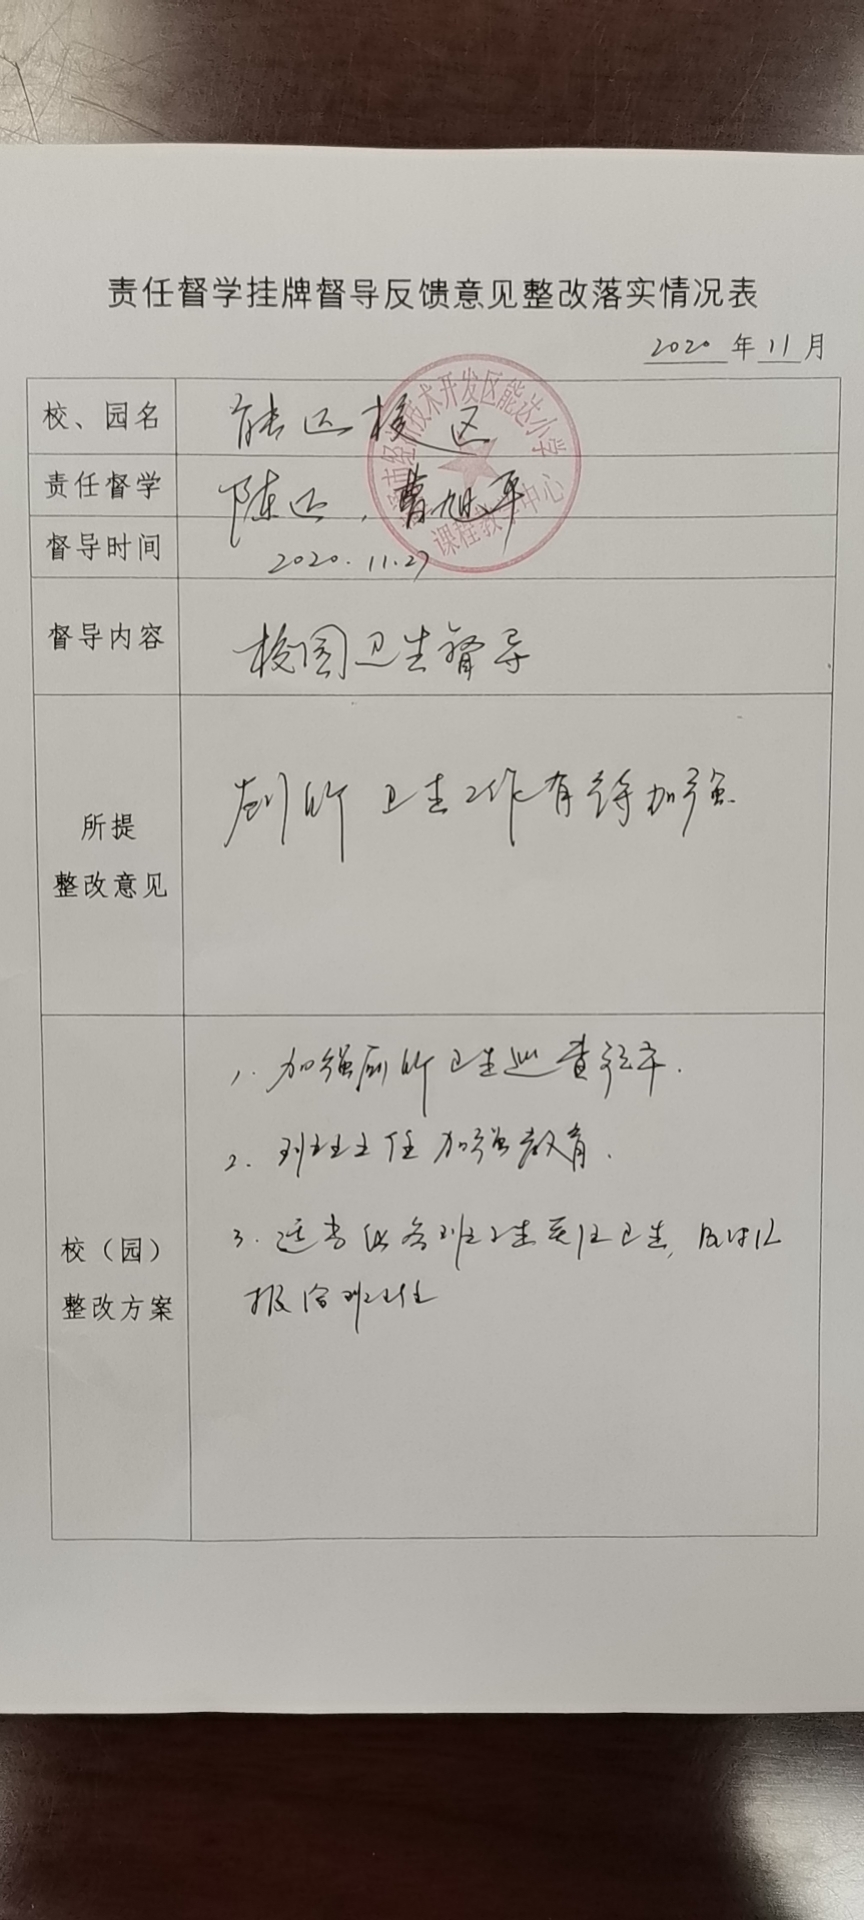 责任督学挂牌督导反馈意见整改落实情况表
2020 年 11 月
校、园名 能达校区
责任督学 陈达、曹旭平
督导时间 2020.11.27
督导内容 校园卫生督导
所提
整改意见
厕所卫生工作有待加强.
校（园）
整改方案
1. 加强厕所卫生巡查
2. 班主任加强教育.
3. 适当
报给班主任
经济技术开发区能达小学
课程教学中心